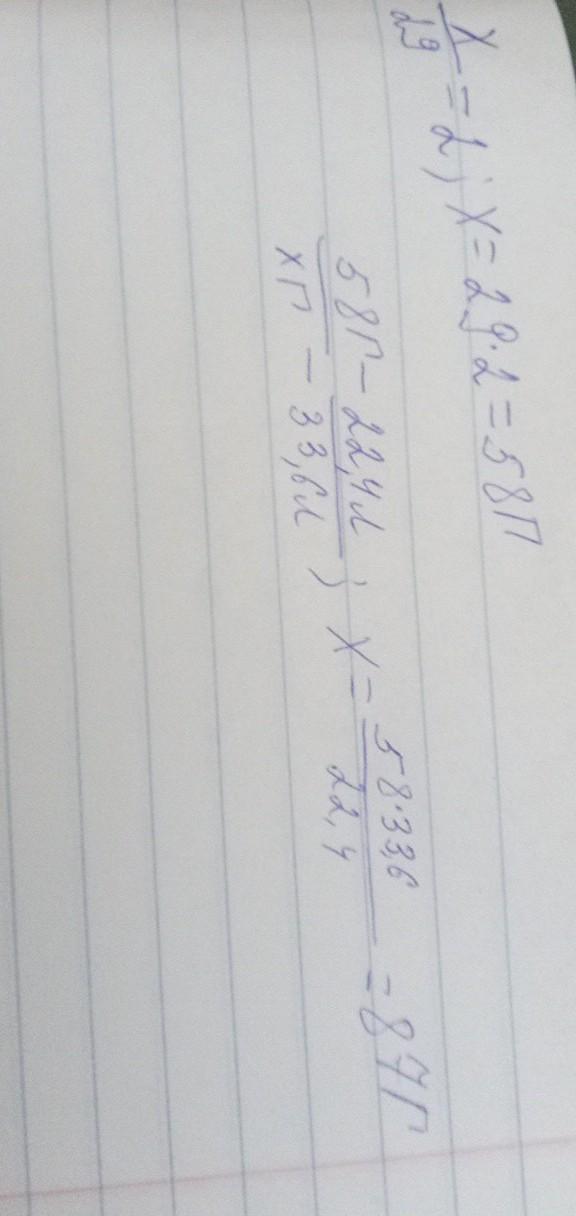 x/29 = 2; x = 29·2 = 58г
58г – 22,4л
xг – 33,6л ; x = 58·33,6 / 22,4 = 87г